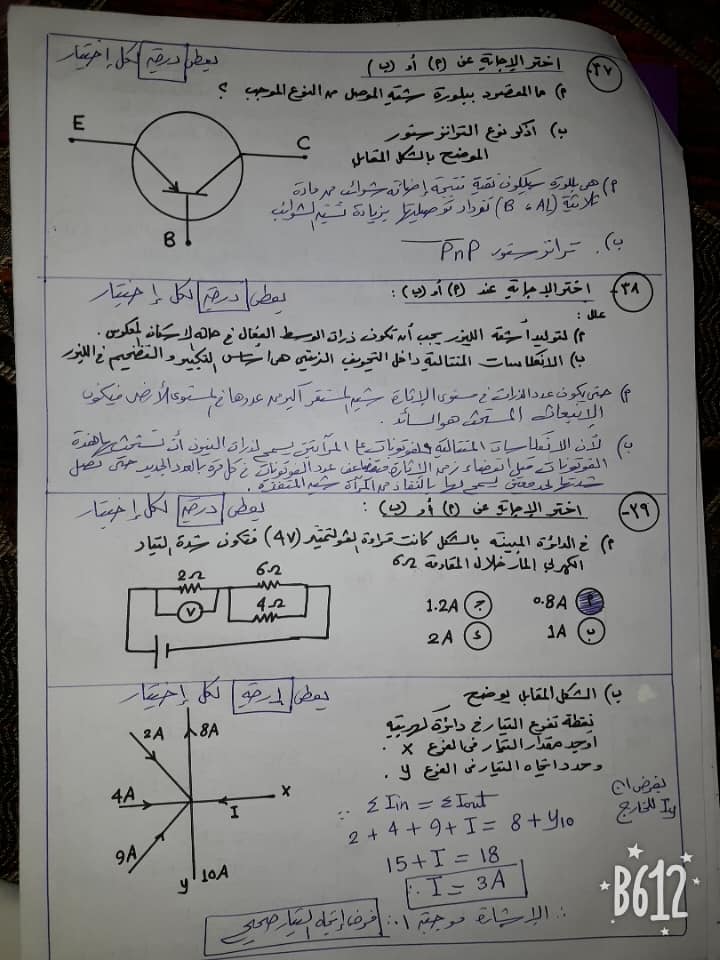 ٣٧- اختر الإجابة عن (٢) أو (ب) يعطى درجة لكل إختيار
٢) ما المقصود ببلورة شبه الموصل من النوع الموجب ؟
ب) اذكر نوع الترانزستور
الموضح بالشكل المقابل
E
C
B
٢) هي بلورة سيليكون نقية نتيجة إضافة شوائب من مادة
ثلاثية (B ، Al) تزداد توصيليتها بزيادة نسبة الشوائب
ب) ترانزستور PnP
٣٨- اختر الإجابة عن (٢) أو (ب) : يعطى درجة لكل إختيار
علل :
٢) لتوليد أشعة الليزر يجب أن تكون ذرات الوسط الفعال في حالة لإسكان المعكوس .
ب) الانعكاسات المتتالية داخل التجويف الرنيني هي أساس التكبير و التضخيم في الليزر
٢) حتى يكون عدد الذرات في مستوى الإثارة شبه المستقر أكبر من عددها في المستوى الأرضي فيكون
الإنبعاث المستحث هو السائد .
ب) لأن الانعكاسات المتتالية للفوتونات على المرآتين يسمح لذرات النيون أن تستحث بهذه
الفوتونات قبل انقضاء زمن الإثارة فيتضاعف عدد الفوتونات في كل مرة بالعدد الجديد حتى تصل
شدتها لحد معين يسمح لها بالنفاذ من المرآة شبه المنفذة .
٣٩- اختر الإجابة عن (٢) أو (ب) : يعطى درجة لكل إختيار
٢) في الدائرة المبينة بالشكل كانت قراءة الفولتميتر (4V) فتكون شدة التيار
الكهربي المار خلال المقاومة 6Ω
2Ω
6Ω
V
4Ω
٢ 0.8A
ج 1.2A
ب 1A
د 2A
ب) الشكل المقابل يوضح يعطى درجة لكل إختيار
نقطة تفرع التيار في دائرة كهربية
أوجد مقدار التيار في الفرع x .
وحدد اتجاه التيار في الفرع y .
2A
8A
4A
x
I
9A
y
10A
بفرض أن
Iy للخارج
∵ ΣIin = ΣIout
2 + 4 + 9 + I = 8 + y10
15 + I = 18
∴ I = 3A
∴ الإشارة موجبة ∴ فرض إتجاه التيار صحيح
B612